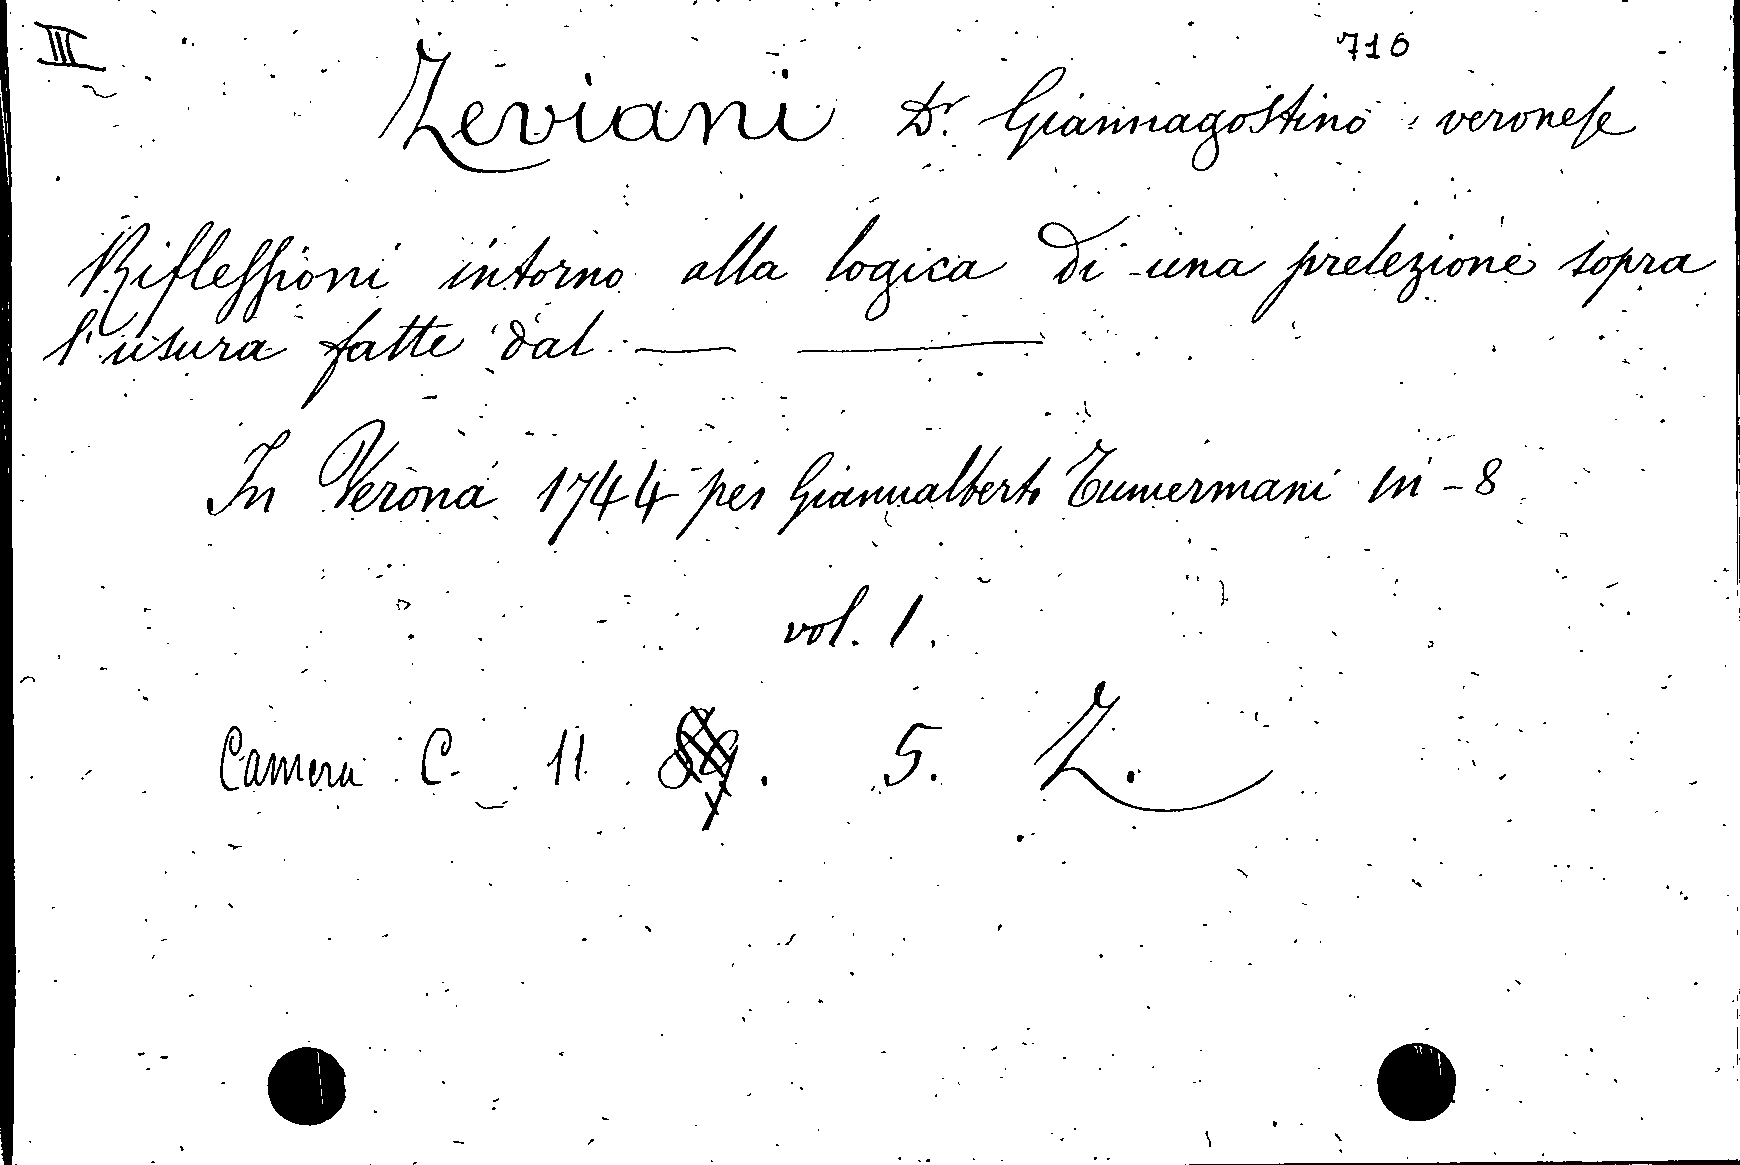 III 716
Zeviani Dr. Giannagostino veronese
Riflessioni intorno alla logica di una prelezione sopra
l'usura fatte dal — ——
In Verona 1744 per Giannalberto Tumermani in-8
vol. 1.
Camera C. 11 . 5. Z.